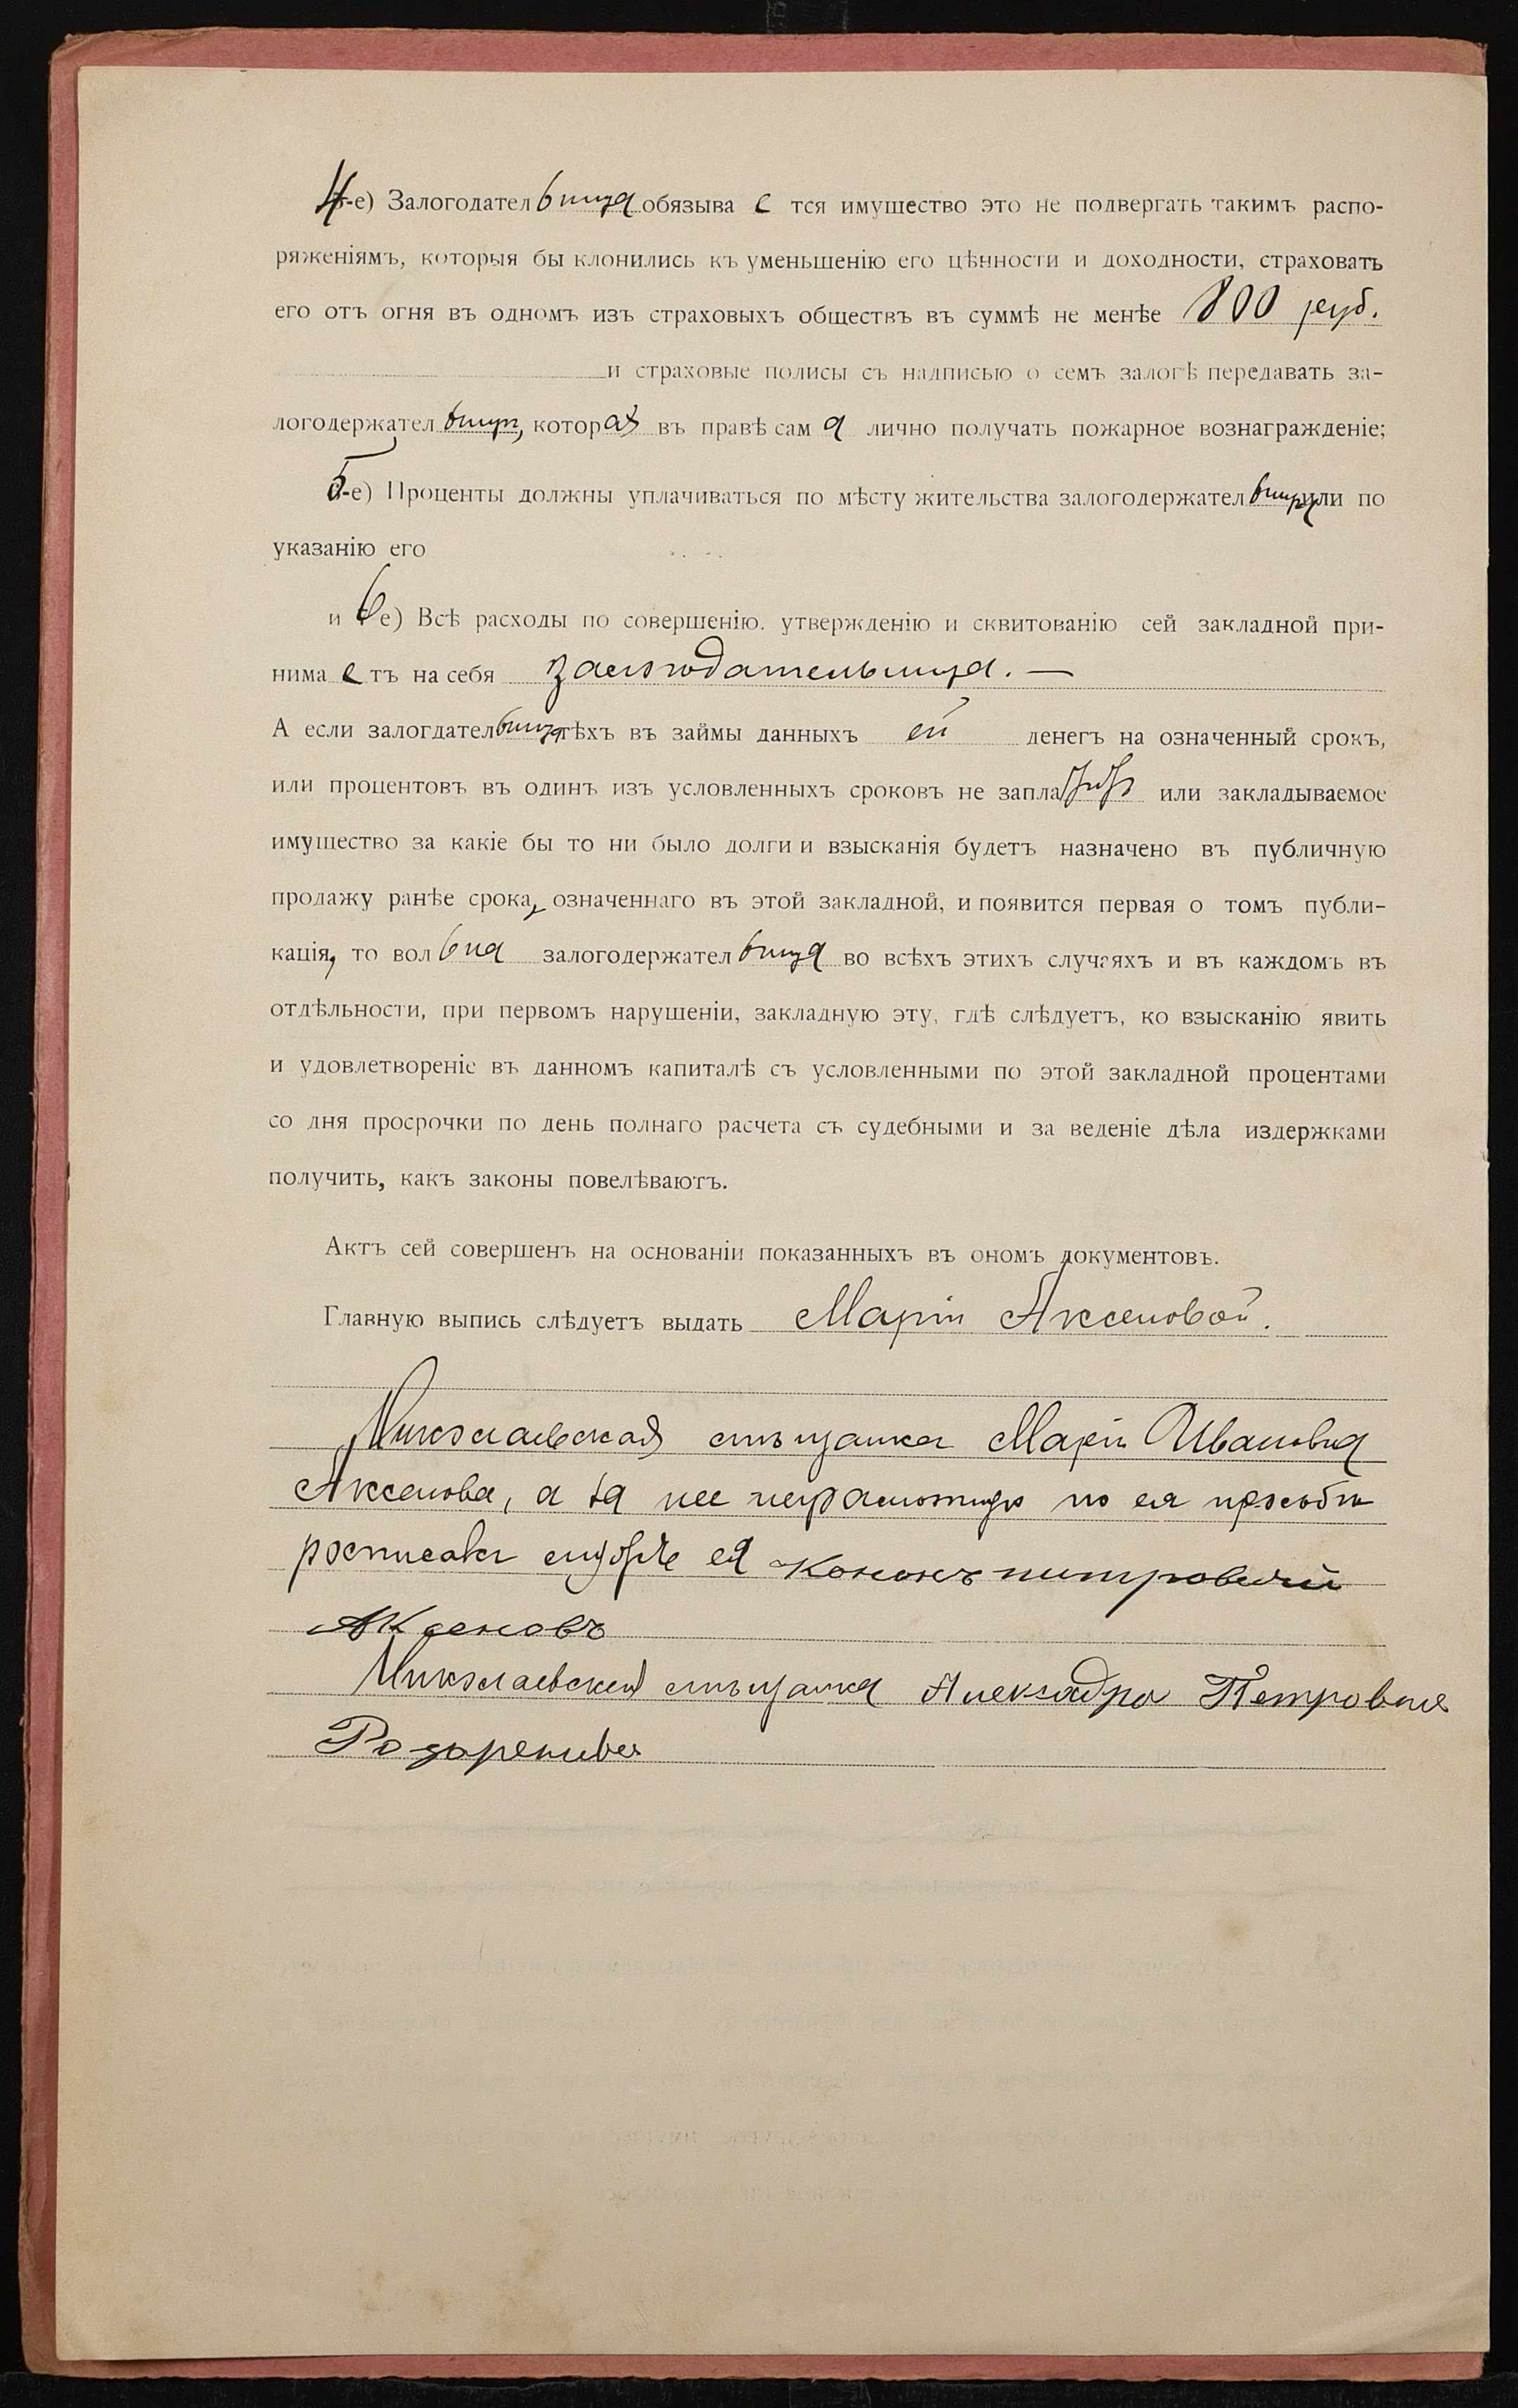 4-е) Залогодательница обязывается имущество это не подвергать такимъ распо-
ряженіямъ, которыя бы клонились къ уменьшенію его цѣнности и доходности, страховать
его отъ огня въ одномъ изъ страховыхъ обществъ въ суммѣ не менѣе 800 руб.
и страховые полисы съ надписью о семъ залогѣ передавать за-
логодержательницѣ, которая въ правѣ сама лично получать пожарное вознагражденіе;
5-е) Проценты должны уплачиваться по мѣсту жительства залогодержательницы или по
указанію его
и 6е) Всѣ расходы по совершенію. утвержденію и сквитованію сей закладной при-
нимаетъ на себя залогодательница. —
А если залогдательница тѣхъ въ займы данныхъ ей денегъ на означенный срокъ,
или процентовъ въ одинъ изъ условленныхъ сроковъ не заплатитъ или закладываемое
имущество за какіе бы то ни было долги и взысканія будетъ назначено въ публичную
продажу ранѣе срока, означеннаго въ этой закладной, и появится первая о томъ публи-
кація, то вольна залогодержательница во всѣхъ этихъ случаяхъ и въ каждомъ въ
отдѣльности, при первомъ нарушеніи, закладную эту, гдѣ слѣдуетъ, ко взысканію явить
и удовлетвореніе въ данномъ капиталѣ съ условленными по этой закладной процентами
со дня просрочки по день полнаго расчета съ судебными и за веденіе дѣла издержками
получить, какъ законы повелѣваютъ.
Актъ сей совершенъ на основаніи показанныхъ въ ономъ документовъ.
Главную выпись слѣдуетъ выдать Маріи Аксеновой.
Николаевская мѣщанка Марія Ивановна
Аксенова, а за нее неграмотную по ея прозьбѣ
росписався ея Кононъ питровичъ
Аксеновъ
Николаевская мѣщанка Александра Петровна